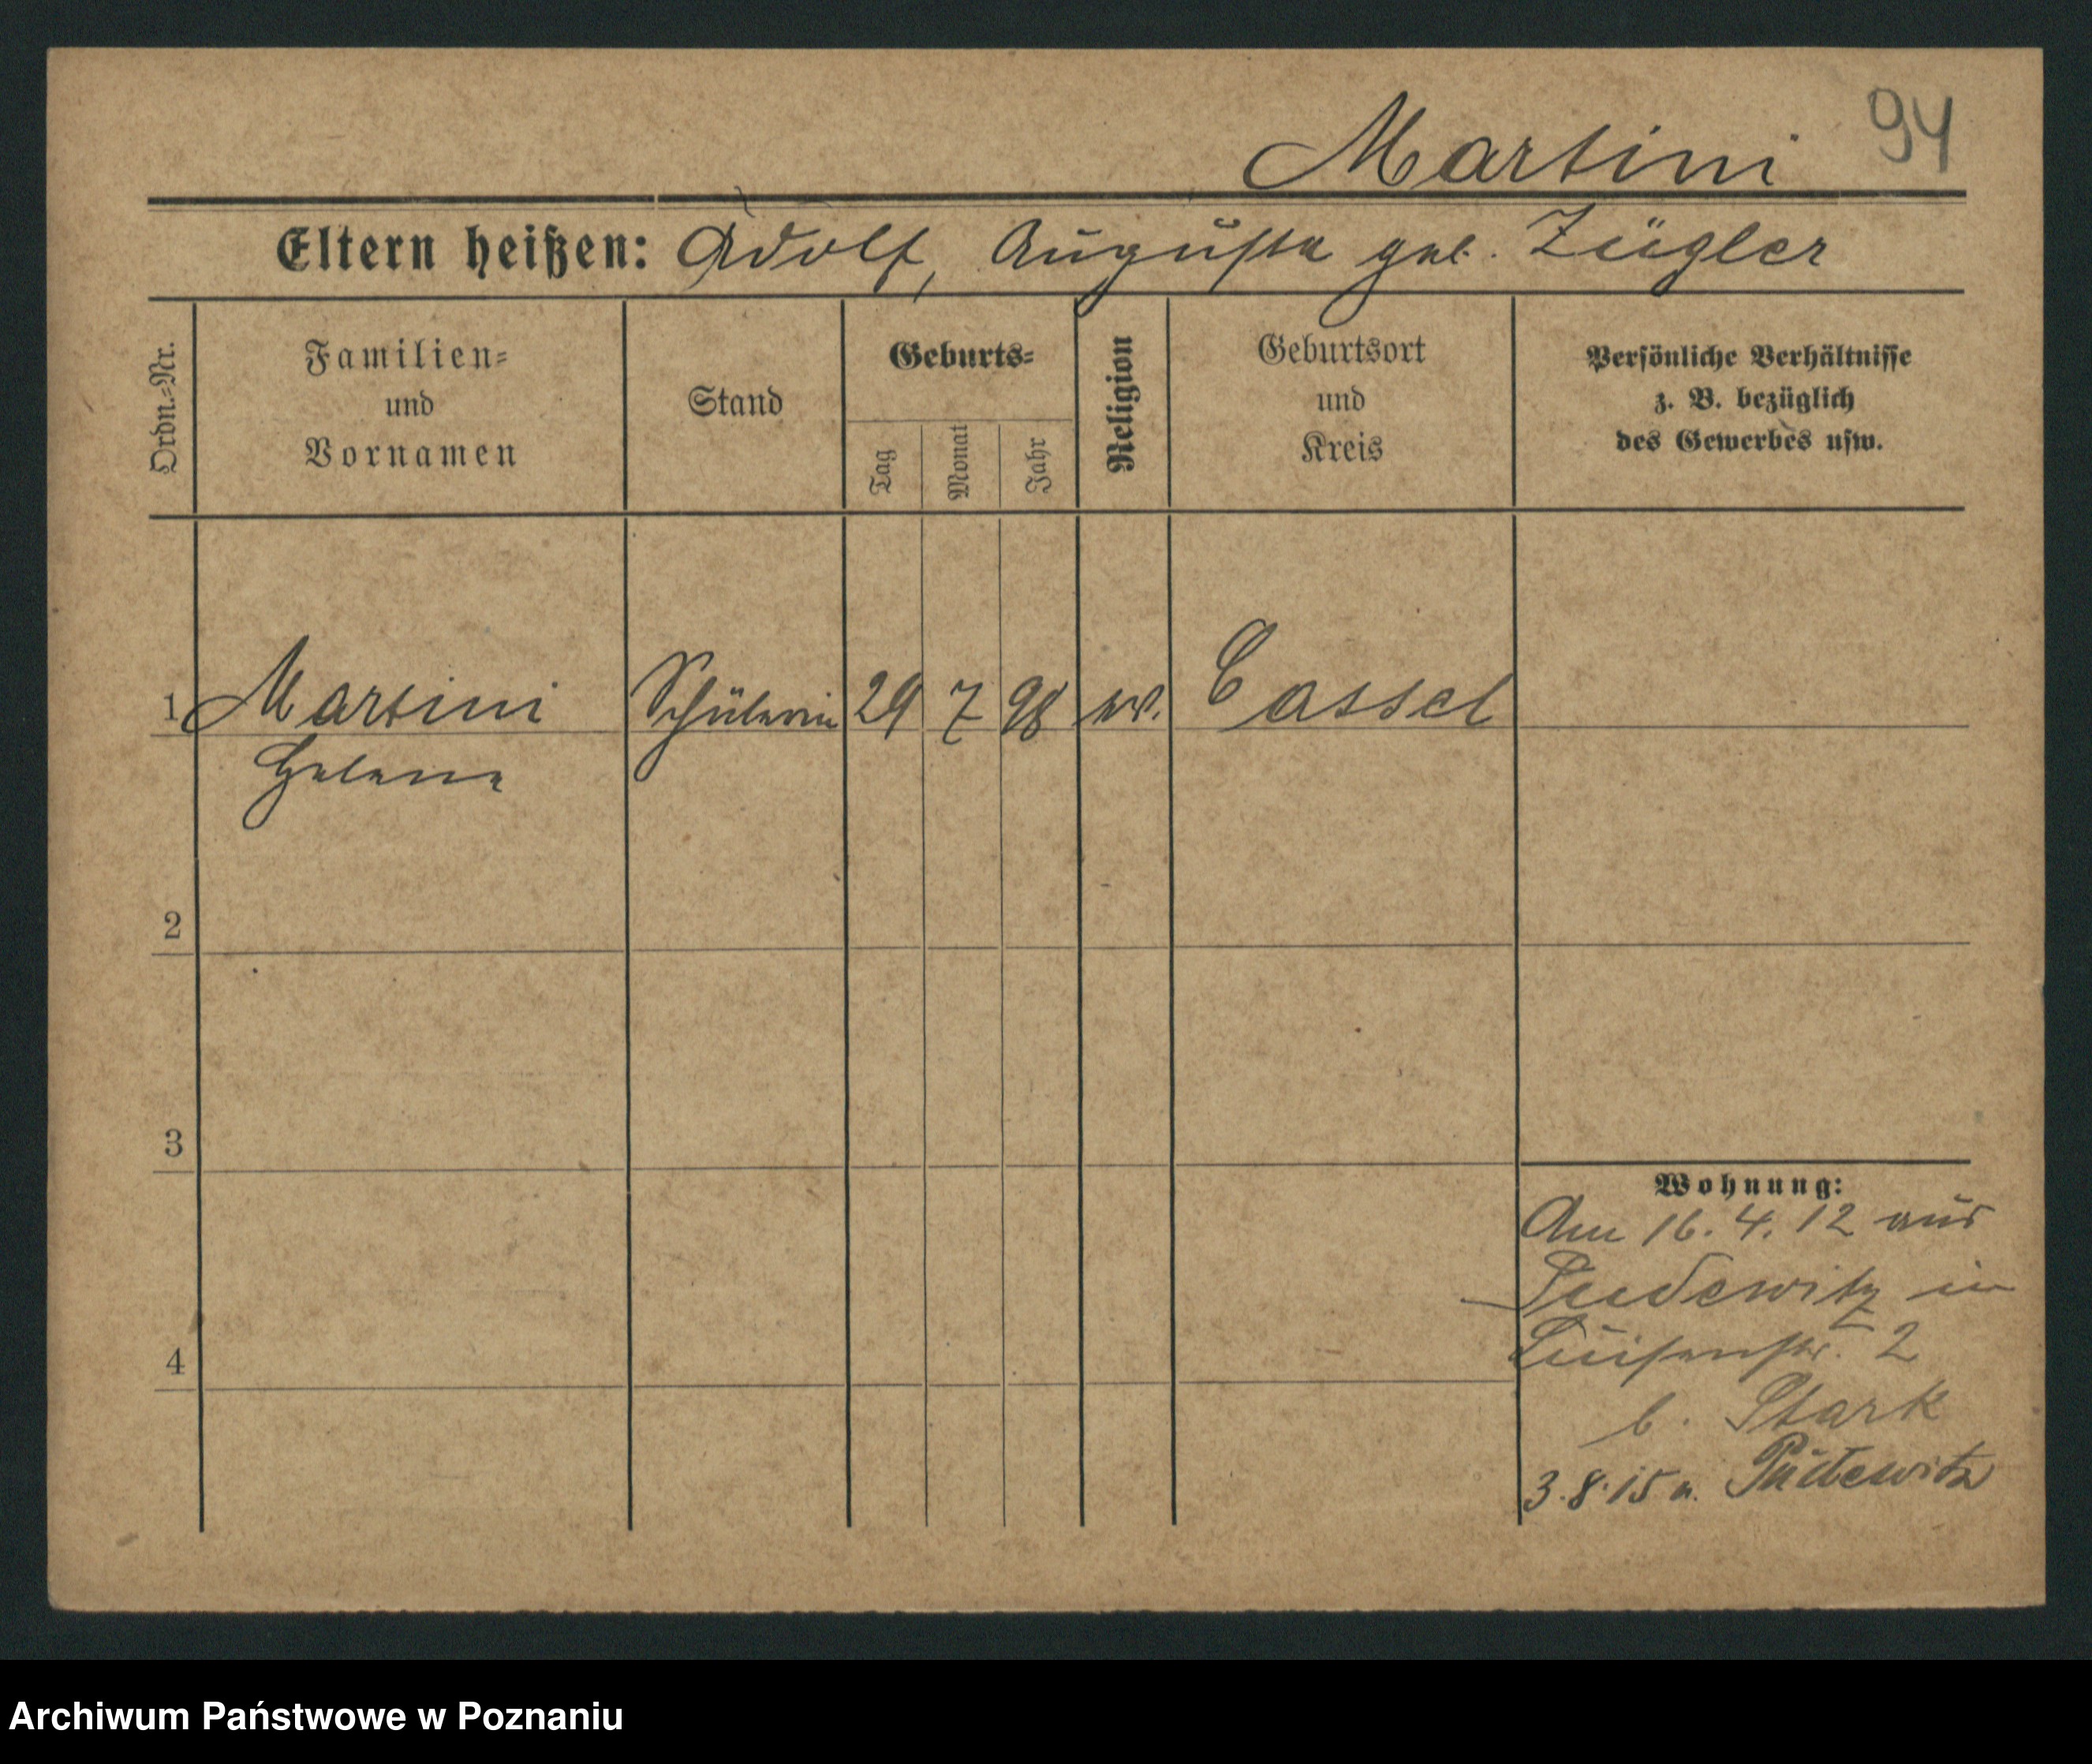 94
Martini
Eltern heißen: Adolf, Auguste geb. Zügler
Ordn.-Nr.
Familien-
und
Vornamen
Stand
Geburts-
Tag
Monat
Jahr
Religion
Geburtsort
und
Kreis
Persönliche Verhältnisse
z. B. bezüglich
des Gewerbes usw.
1 Martini Schülerin 29 7 98 ev. Cassel
Helene
2
3
4
Wohnung:
Am 16. 4. 12 aus
Pudewitz in
Luisenstr. 2
b. Stark
3.8.15 n. Pudewitz
Archiwum Państwowe w Poznaniu